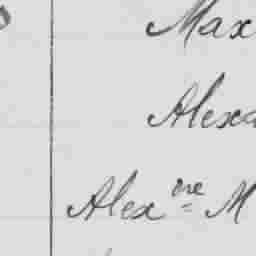 Max
Alexa
Alex ne M